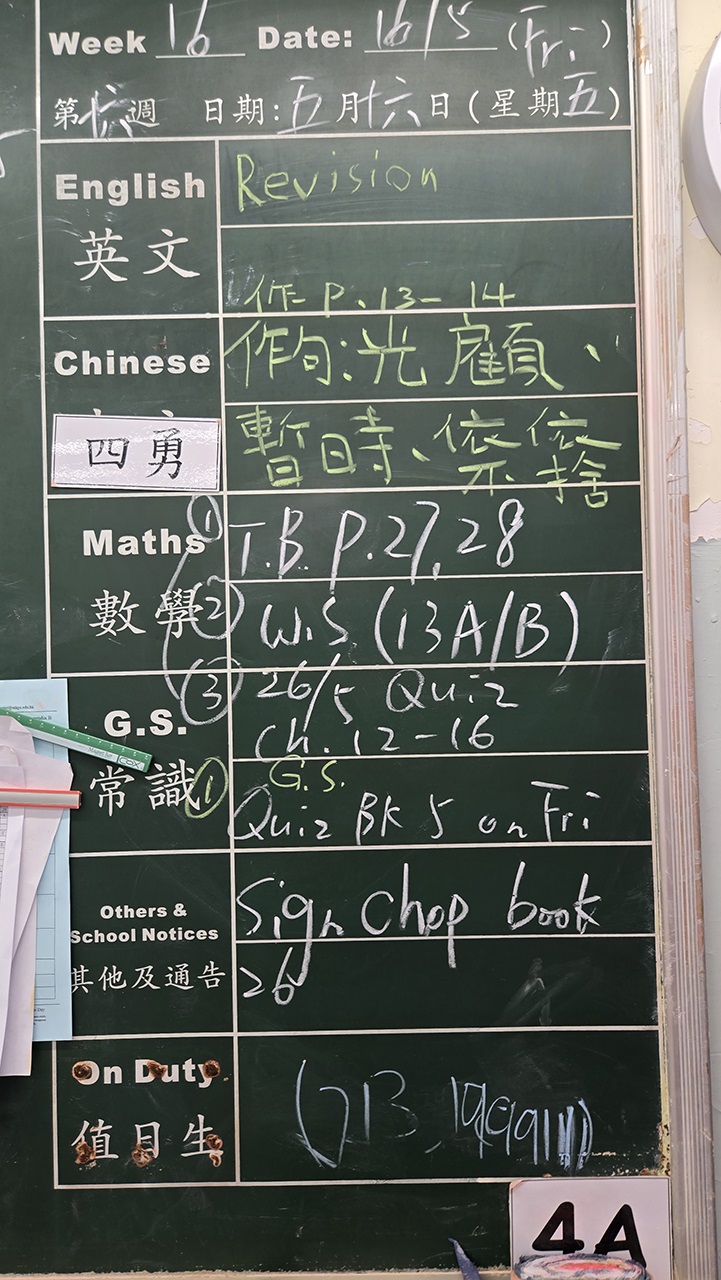 Week 16 Date: 16/5 (Fri)
第十六週 日期:五月十六日(星期五)
English Revision
英文
作 P.13-14
Chinese 作句:光顧、
四勇 暫時、依依不捨
Maths ① T.B. P.27, 28
數學 ② W.S (13A/B)
③ 26/5 Quiz
G.S. Ch. 12-16
常識 ① G.S.
Quiz BK 5 on Fri
Others & Sign Chop book
School Notices
其他及通告 26
On Duty
值日生
4A